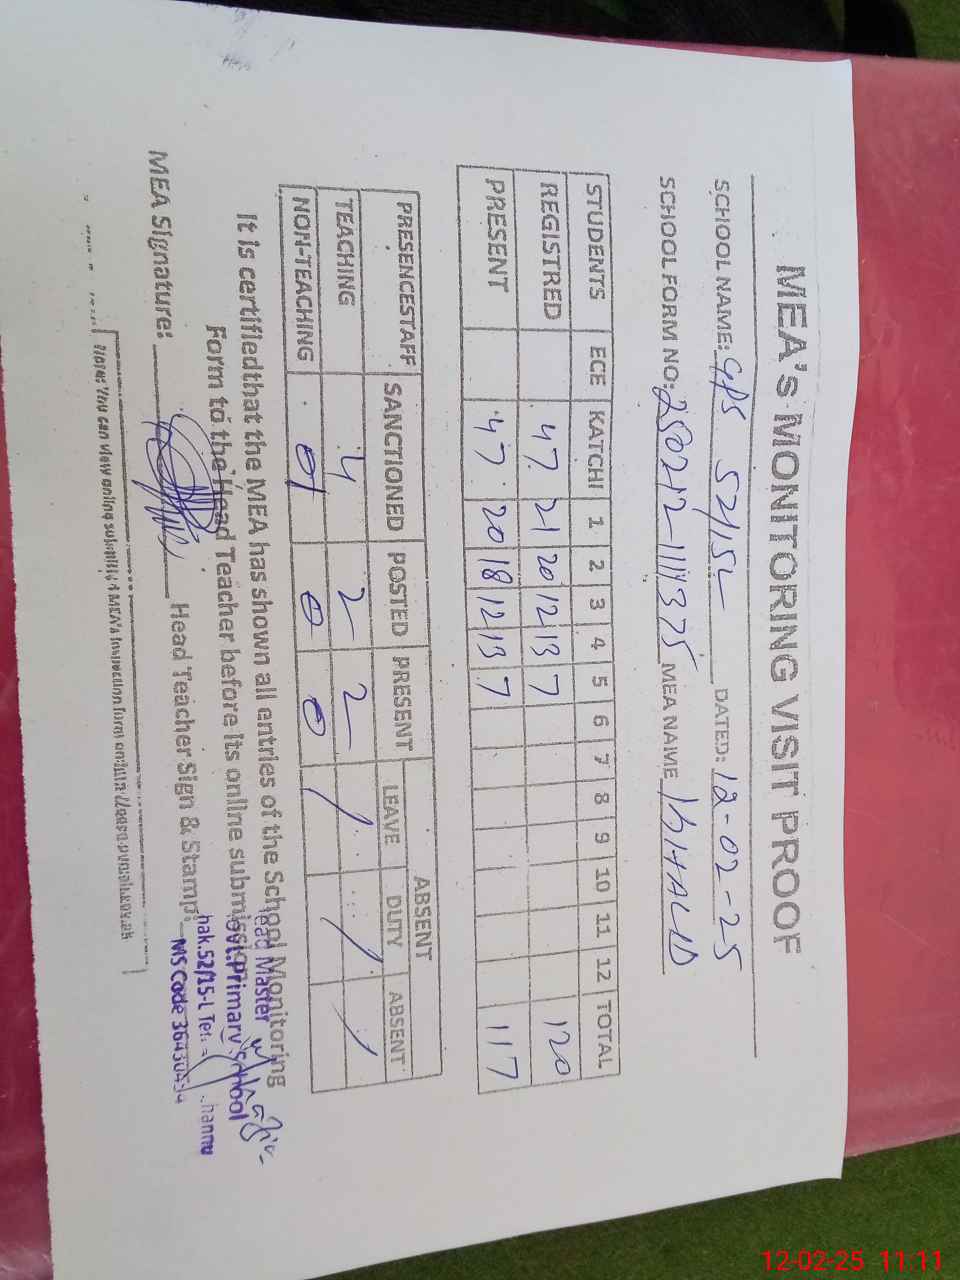 MEA's MONITORING VISIT PROOF
SCHOOL NAME: GPS 52/15L DATED: 12-02-25
SCHOOL FORM NO: MEA NAME KHALID
STUDENTS ECE KATCHI 1 2 3 4 5 6 7 8 9 10 11 12 TOTAL
REGISTRED 47 21 20 12 13 7 120
PRESENT 47 20 18 12 13 7 117
PRESENCESTAFF SANCTIONED POSTED PRESENT ABSENT
LEAVE DUTY ABSENT
TEACHING 4 2 2 / / /
NON-TEACHING 0 0
It is certifiedthat the MEA has shown all entries of the School Monitoring
Form to the Head Teacher before its online submission
MEA Signature: Head Teacher Sign & Stamp:
Head Master
Govt.Primary School
Chak.52/15-L
Note: You can view online submitted MEA's Inspection form on
12-02-25 11:11